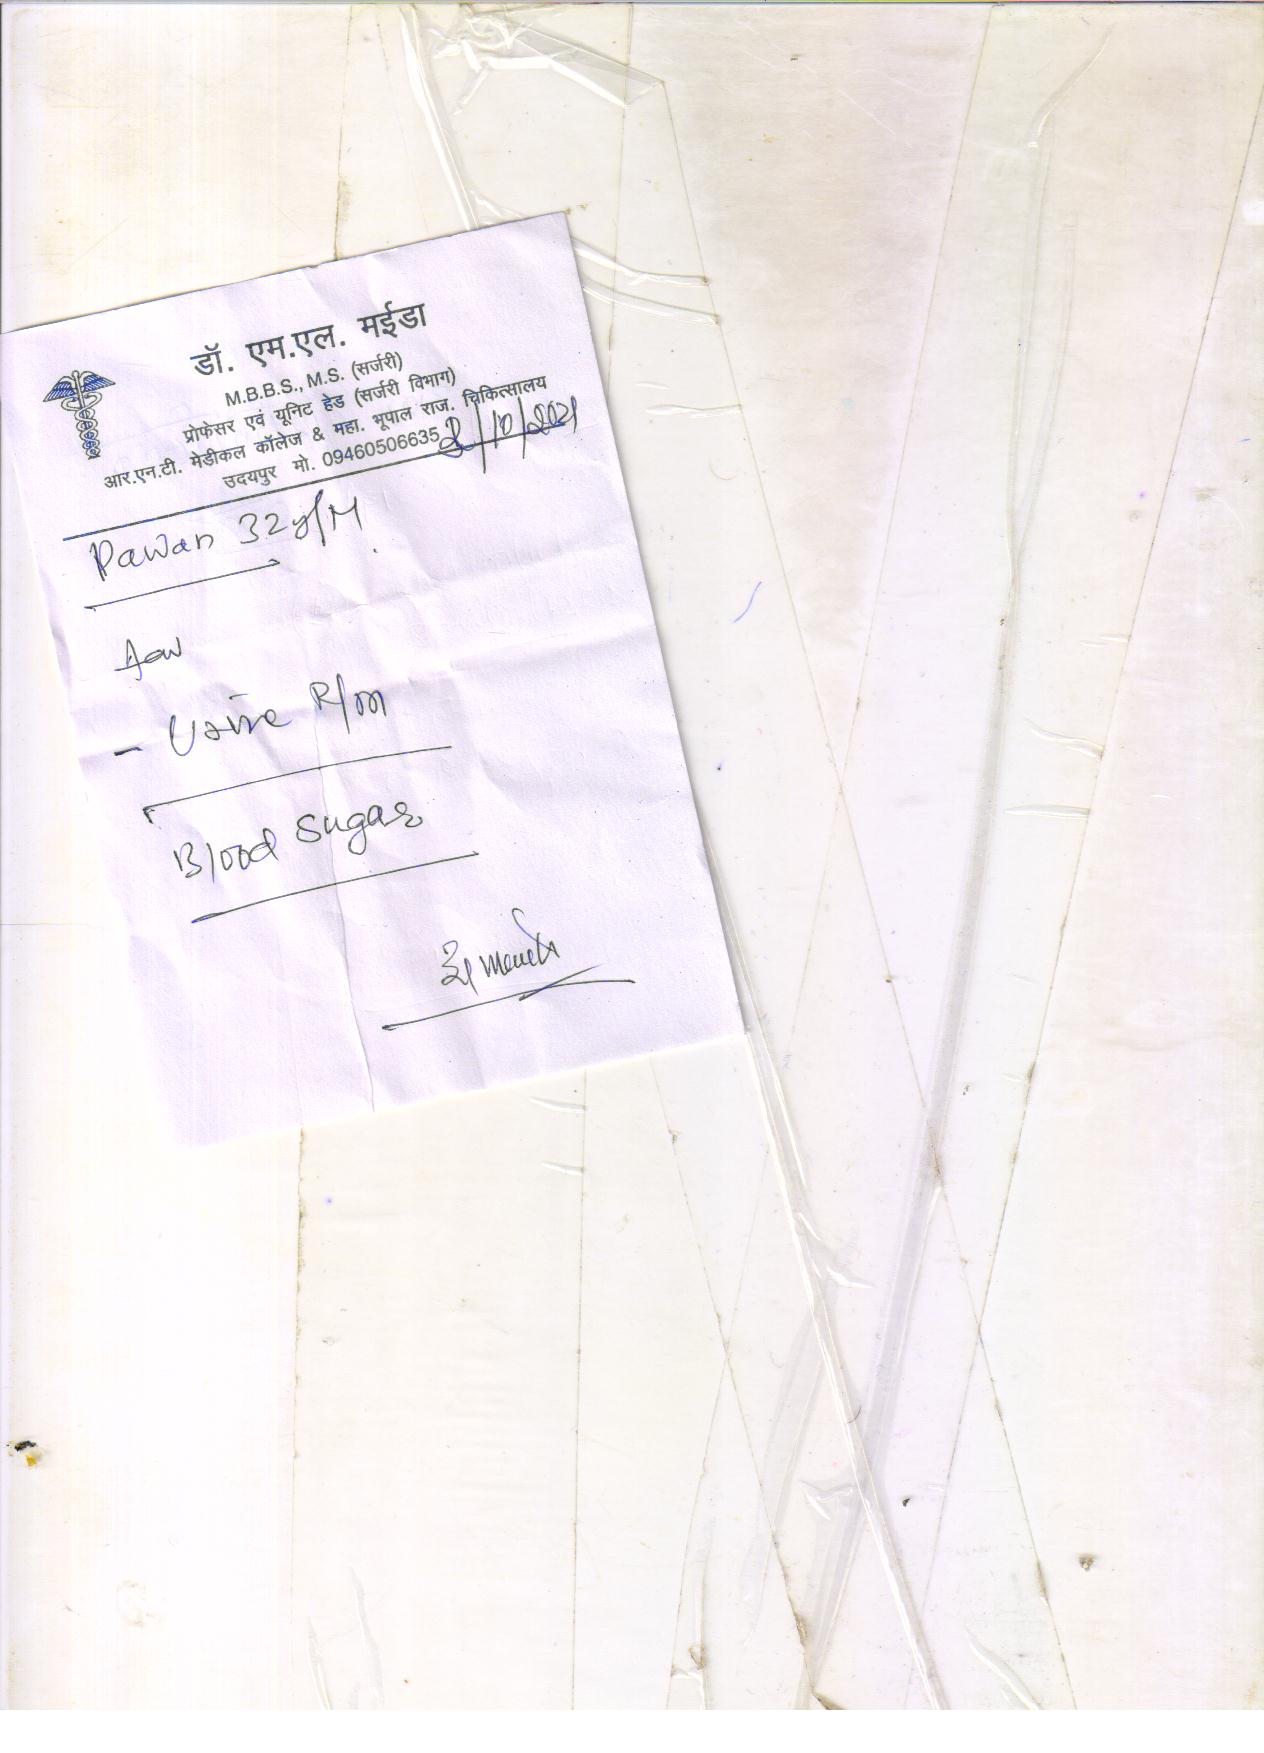 डॉ. एम.एल. मईडा
M.B.B.S., M.S. (सर्जरी)
प्रोफेसर एवं यूनिट हेड (सर्जरी विभाग)
आर.एन.टी. मेडीकल कॉलेज & महा. भूपाल राज. चिकित्सालय
उदयपुर मो. 09460506635
2/10/2021
Pawan 32y/M
Adv
- Urine R/m
Blood Sugar